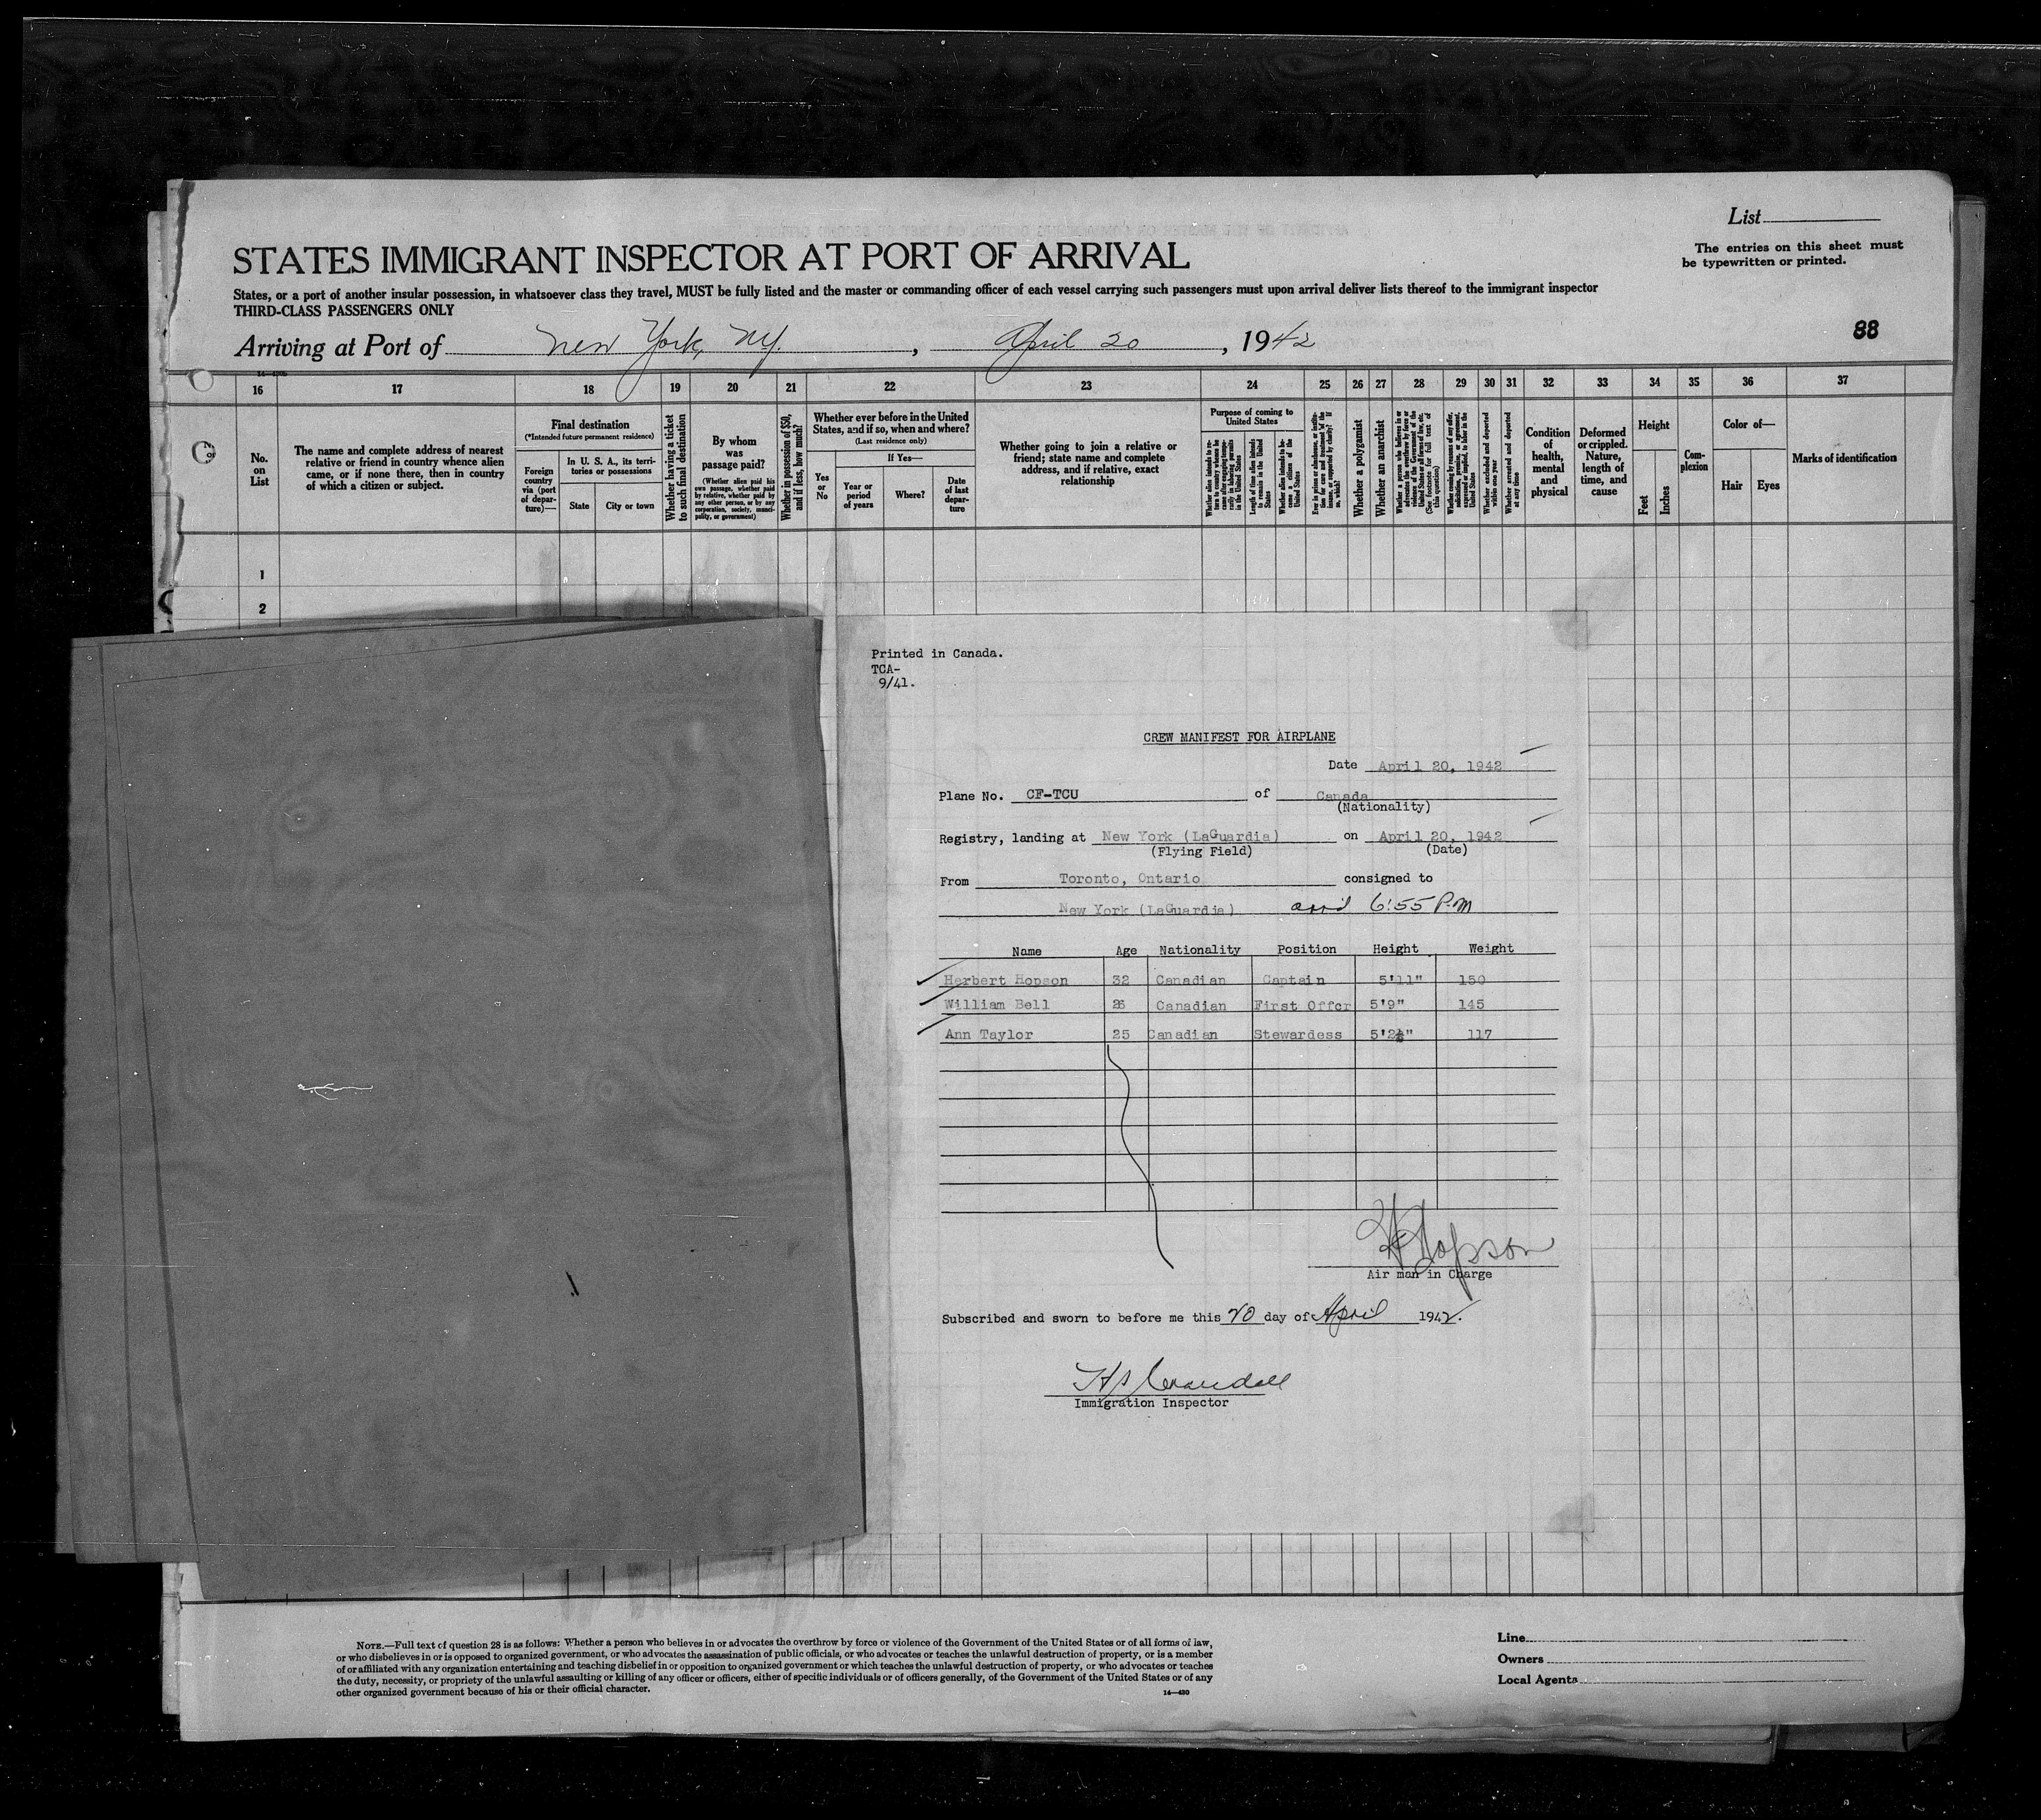 List
STATES IMMIGRANT INSPECTOR AT PORT OF ARRIVAL
The entries on this sheet must
be typewritten or printed.
States, or a port of another insular possession, in whatsoever class they travel, MUST be fully listed and the master or commanding officer of each vessel carrying such passengers must upon arrival deliver lists thereof to the immigrant inspector
THIRD-CLASS PASSENGERS ONLY
Arriving at Port of New York, NY. , April 20 , 1942
88
16 17 18 19 20 21 22 23 24 25 26 27 28 29 30 31 32 33 34 35 36 37
No.
on
List
The name and complete address of nearest
relative or friend in country whence alien
came, or if none there, then in country
of which a citizen or subject.
Final destination
(*Intended future permanent residence)
Foreign
country
via (port
of depar-
ture)—
In U. S. A., its terri-
tories or possessions
State
City or town
Whether having a ticket
to such final destination
By whom
was
passage paid?
(Whether alien paid his
own passage, whether paid
by relative, whether paid by
any other person, or by any
corporation, society, munici-
pality, or government)
Whether in possession of $50,
and if less, how much?
Whether ever before in the United
States, and if so, when and where?
(Last residence only)
Yes
or
No
If Yes—
Year or
period
of years
Where?
Date
of last
depar-
ture
Whether going to join a relative or
friend; state name and complete
address, and if relative, exact
relationship
Purpose of coming to
United States
Length of time alien intends
to remain in the United
States
Whether alien intends to be-
come a citizen of the
United States
Whether a polygamist
Whether an anarchist
Whether excluded and deported
within one year
Whether arrested and deported
at any time
Condition
of
health,
mental
and
physical
Deformed
or crippled.
Nature,
length of
time, and
cause
Height
Feet
Inches
Com-
plexion
Color of—
Hair
Eyes
Marks of identification
1
2
Printed in Canada.
TCA-
9/41.
CREW MANIFEST FOR AIRPLANE
Date April 20, 1942
Plane No. CF-TCU of Canada
(Nationality)
Registry, landing at New York (LaGuardia) on April 20, 1942
(Flying Field) (Date)
From Toronto, Ontario consigned to
New York (LaGuardia) arrd 6:55 P.M
Name Age Nationality Position Height Weight
Herbert Hopson 32 Canadian Captain 5'11" 150
William Bell 26 Canadian First Offcr 5'9" 145
Ann Taylor 25 Canadian Stewardess 5'2½" 117
H Hopson
Air man in Charge
Subscribed and sworn to before me this 20 day of April 1942.
Crandall
Immigration Inspector
NOTE.—Full text of question 28 is as follows: Whether a person who believes in or advocates the overthrow by force or violence of the Government of the United States or of all forms of law,
or who disbelieves in or is opposed to organized government, or who advocates the assassination of public officials, or who advocates or teaches the unlawful destruction of property, or is a member
of or affiliated with any organization entertaining and teaching disbelief in or opposition to organized government or which teaches the unlawful destruction of property, or who advocates or teaches
the duty, necessity, or propriety of the unlawful assaulting or killing of any officer or officers, either of specific individuals or of officers generally, of the Government of the United States or of any
other organized government because of his or their official character.
14—430
Line
Owners
Local Agents